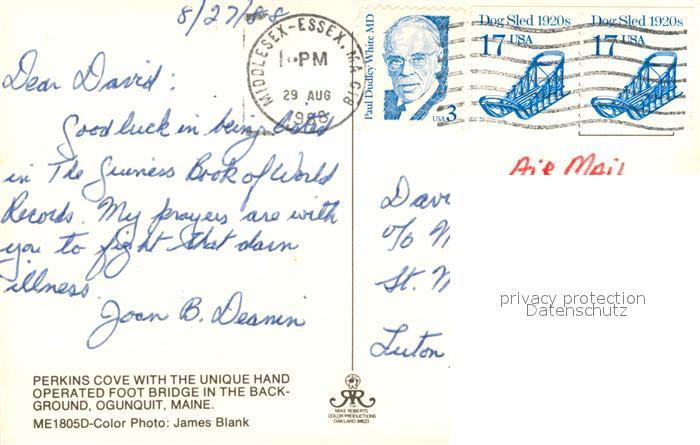 8/27/88
MIDDLESEX-ESSEX, MA 018
PM
29 AUG
1988
Paul Dudley White MD
USA 3
Dog Sled 1920s
17 USA
Dog Sled 1920s
17 USA
Dear David:
Good luck in being listed
in The Guiness Book of World
Records. My prayers are with
you to fight that darn
illness.
Joan B. Deanin
AiR MAiL
Davi
c/o
St. M
Luton
privacy protection
Datenschutz
PERKINS COVE WITH THE UNIQUE HAND
OPERATED FOOT BRIDGE IN THE BACK-
GROUND, OGUNQUIT, MAINE.
ME1805D-Color Photo: James Blank
MIKE ROBERTS
COLOR PRODUCTIONS
OAKLAND 94623